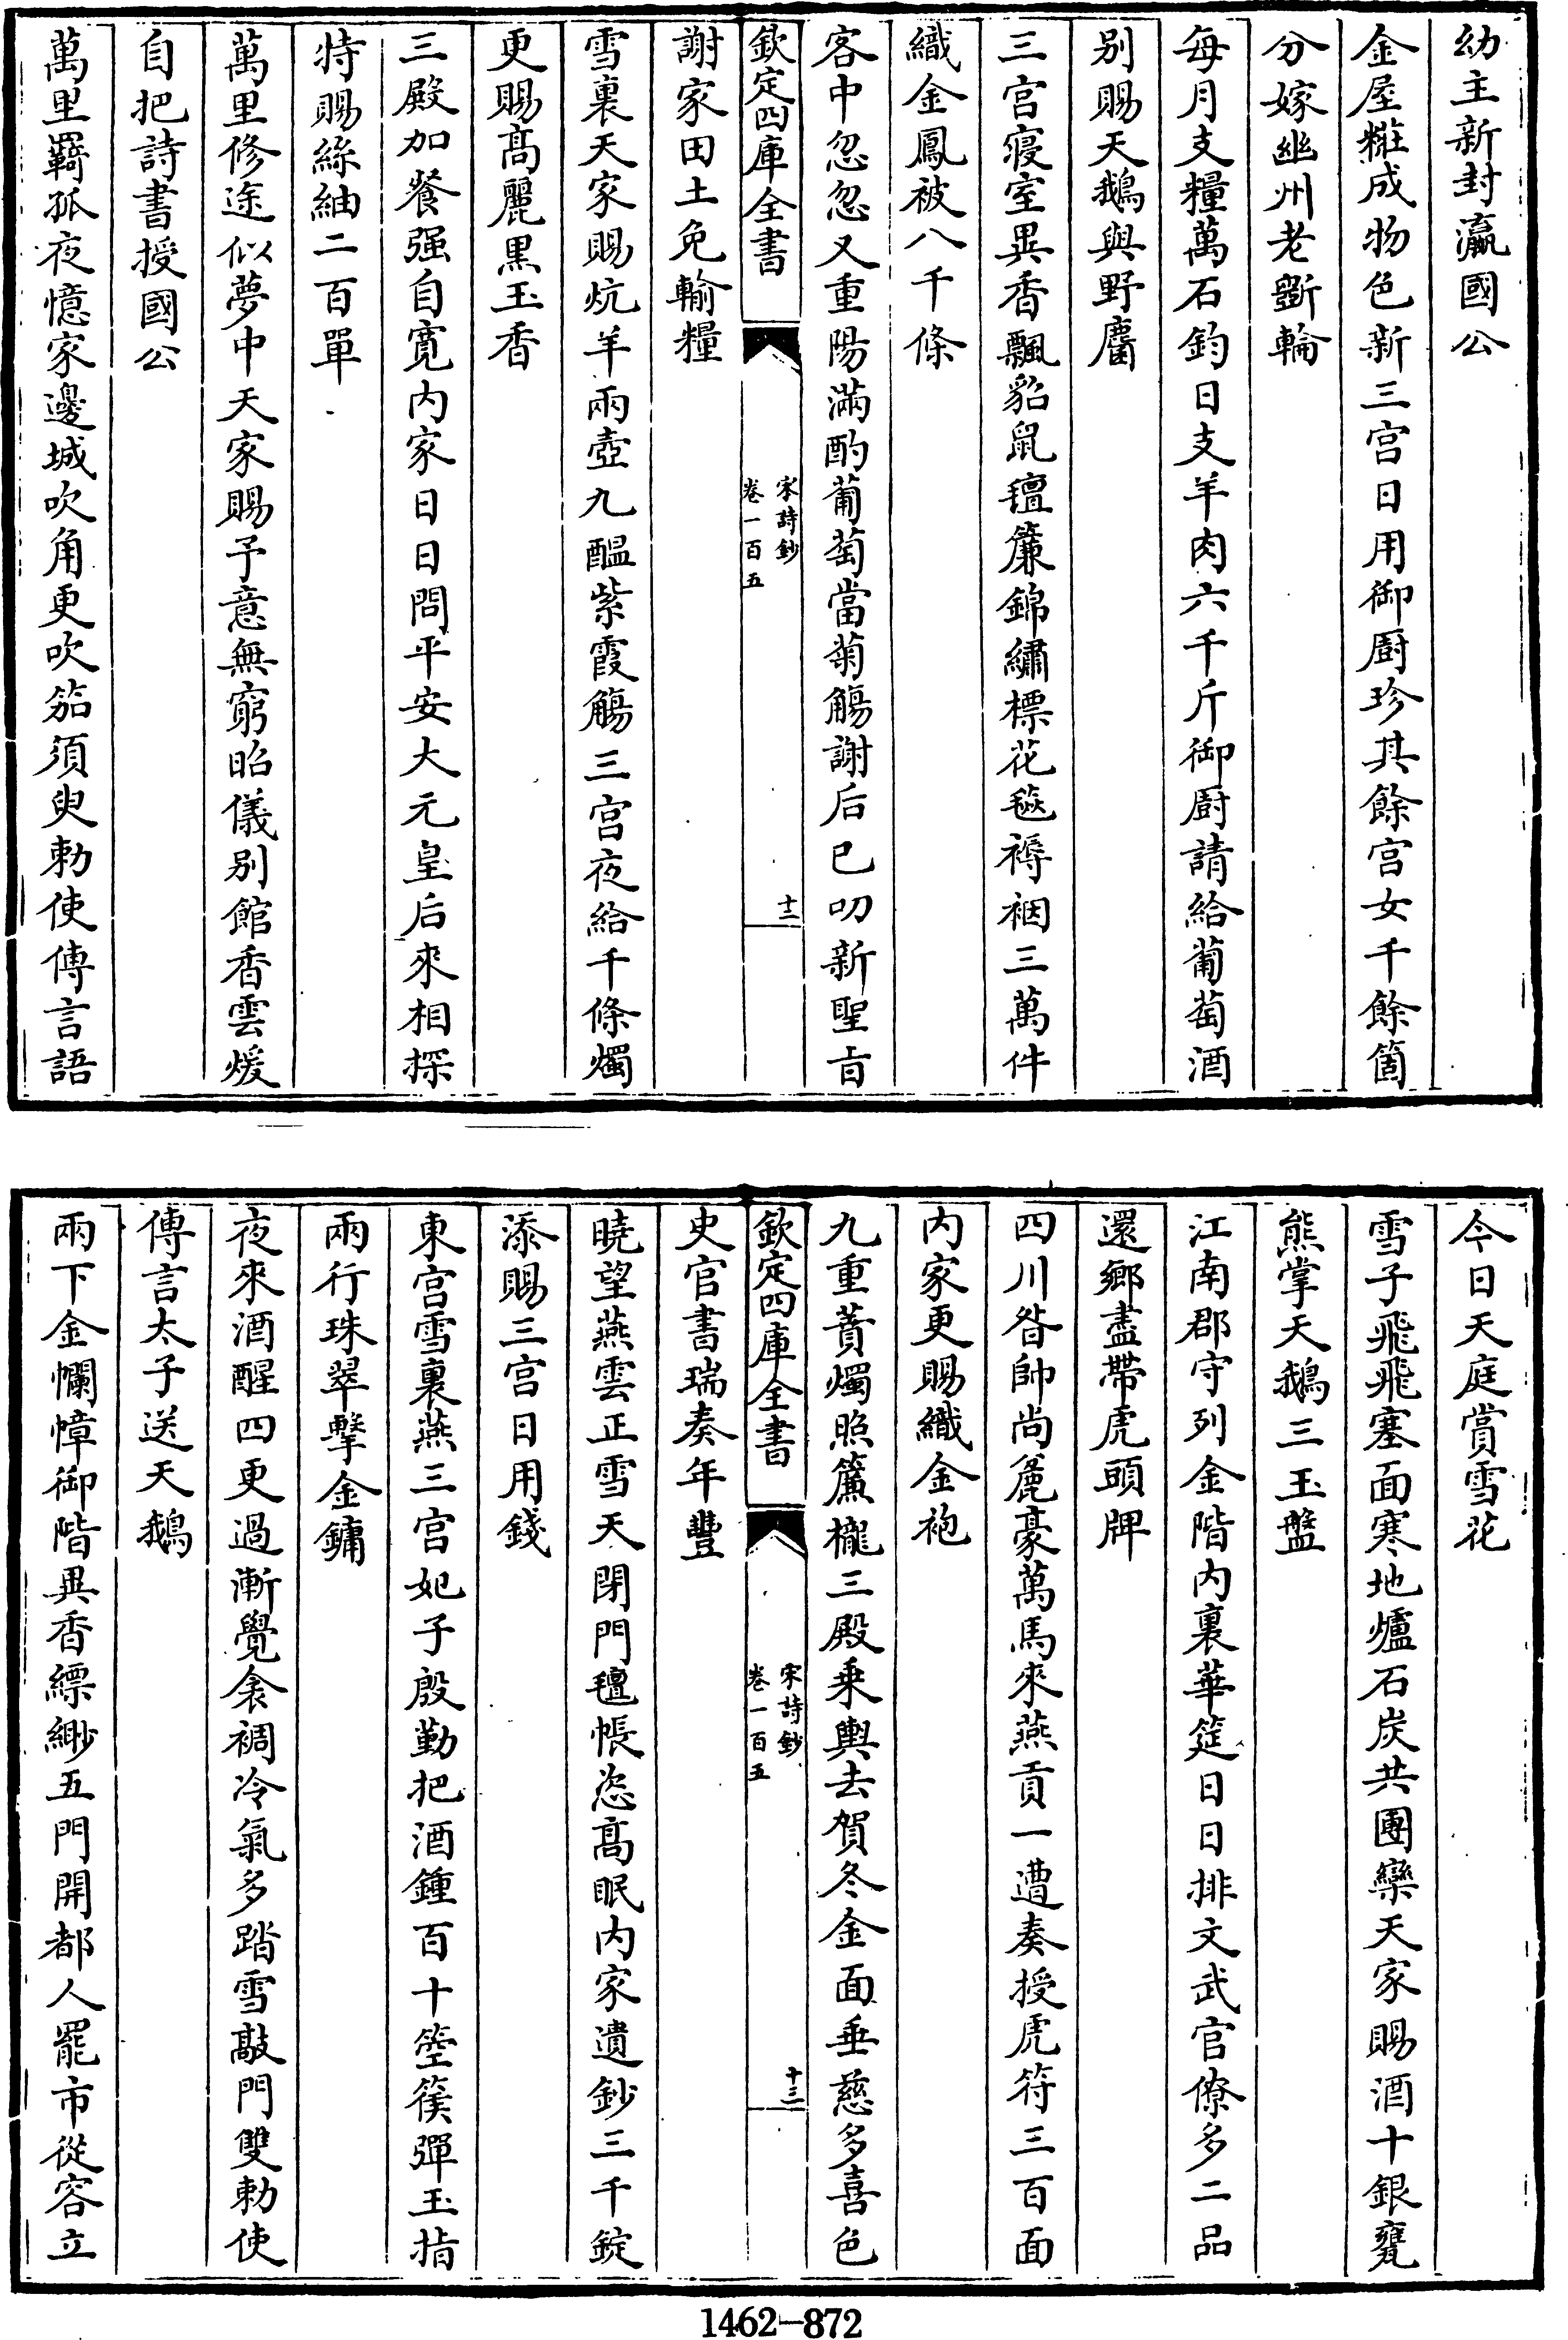 幼主新封瀛國公
金屋糚成物色新三宫日用御厨珍其餘宫女千餘箇
分嫁幽州老斲輪
每月支糧萬石鈞日支羊肉六千斤御厨請給葡萄酒
别賜天鵝與野麕
三宫寝室異香飄貂䑕氊簾錦繡標花毯褥裀三萬件
織金鳳被八千條
客中忽忽又重陽滿酌葡萄當菊觴謝后已叨新聖㫖
欽定四庫全書
宋詩鈔
卷一百五
十二
謝家田土免輸糧
雪裏天家賜炕羊兩壺九醖紫霞觴三宫夜給千條燭
更賜高麗黒玉香
三殿加餐强自寛内家日日問平安大元皇后來相探
特賜絲紬二百單
萬里修途似夢中天家賜予意無窮昭儀别館香雲煖
自把詩書授國公
萬里羇孤夜憶家邊城吹角更吹笳須臾勅使傳言語
今日天庭賞雪花
雪子飛飛塞面寒地爐石炭共團欒天家賜酒十銀甕
熊掌天鵝三玉盤
江南郡守列金階内裏華筵日日排文武官僚多二品
還鄉盡帶虎頭牌
四川昝帥尚麄豪萬馬來燕貢一遭奏授虎符三百面
内家更賜織金袍
九重蕡燭照簾櫳三殿乗輿去賀冬金面垂慈多喜色
欽定四庫全書
宋詩鈔
卷一百五
十三
史官書瑞奏年豐
曉望燕雲正雪天閉門氊帳恣高眠内家遺鈔三千錠
添賜三宫日用錢
東宫雪裏燕三宫妃子殷勤把酒鍾百十箜篌彈玉指
兩行珠翠擊金鏞
夜來酒醒四更過漸覺衾裯冷氣多踏雪敲門雙勅使
傳言太子送天鵝
兩下金襴幛御階異香縹緲五門開都人罷市從容立
1462-872